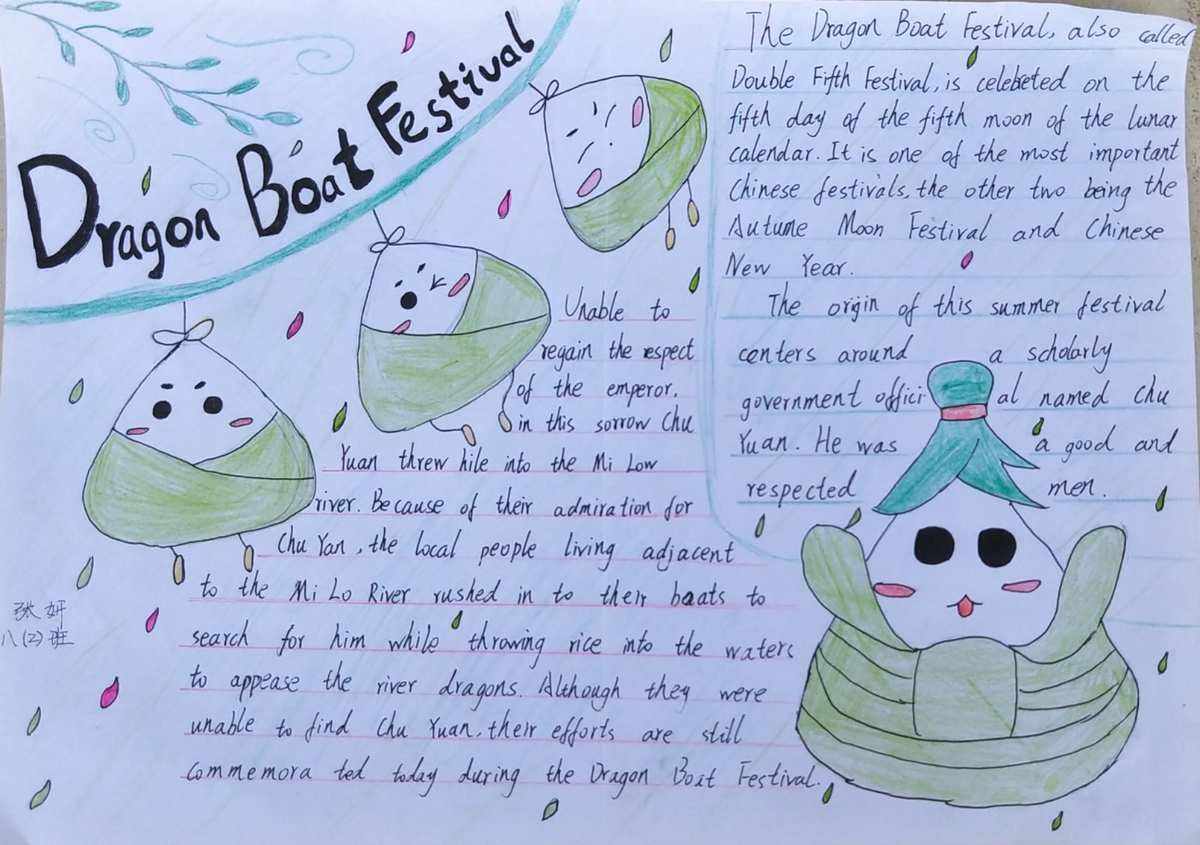 Dragon Boat Festival
The Dragon Boat Festival, also called
Double Fifth Festival, is celebreted on the
fifth day of the fifth moon of the lunar
calendar. It is one of the most important
Chinese festivals, the other two being the
Autume Moon Festival and Chinese
New Year.
The origin of this summer festival
centers around a scholarly
government official named Chu
Yuan. He was a good and
respected men.
Unable to
regain the respect
of the emperor.
in this sorrow Chu
Yuan threw hile into the Mi Low
river. Because of their admiration for
Chu Yan, the local people living adjacent
to the Mi Lo River rushed in to their boats to
search for him while throwing rice into the waters
to appease the river dragons. Although they were
unable to find Chu Yuan, their efforts are still
commemora ted today during the Dragon Boat Festival.
张妍
八(2)班